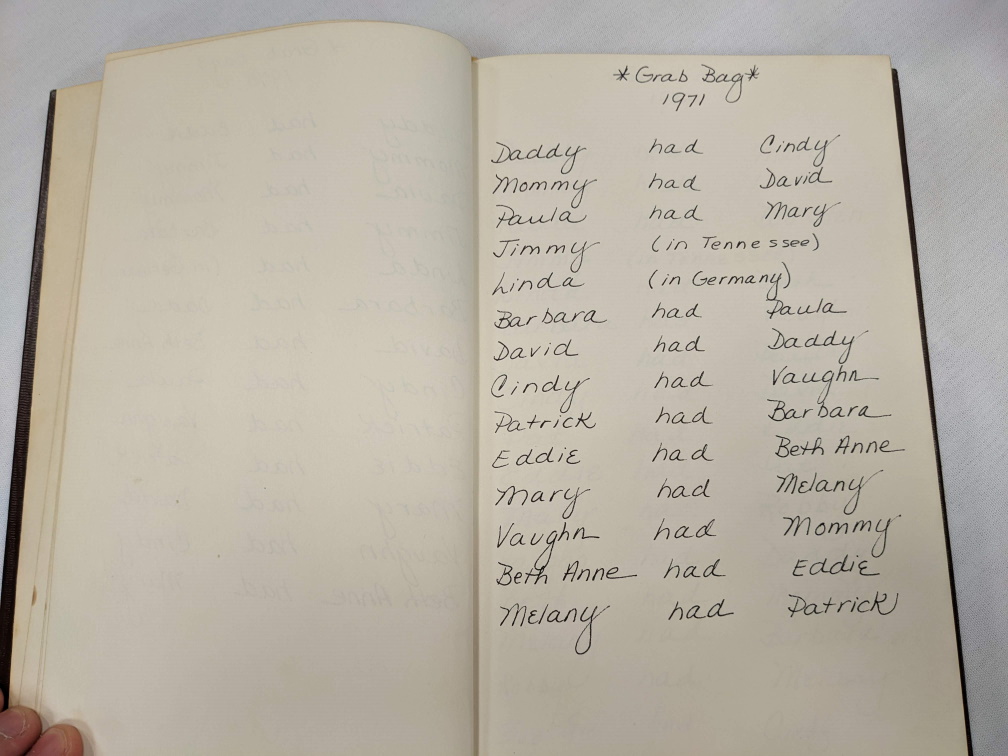 *Grab Bag*
1971
Daddy had Cindy
Mommy had David
Paula had Mary
Jimmy (in Tennessee)
Linda (in Germany)
Barbara had Paula
David had Daddy
Cindy had Vaughn
Patrick had Barbara
Eddie had Beth Anne
Mary had Melany
Vaughn had Mommy
Beth Anne had Eddie
Melany had Patrick